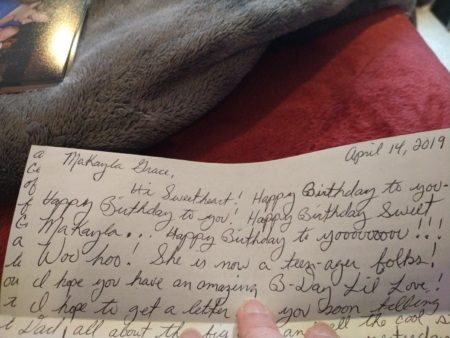 Makayla Grace, April 14, 2019
Hi Sweetheart! Happy Birthday to you-
Happy Birthday to you! Happy Birthday Sweet
Makayla... Happy Birthday to yooooooou!!!
Woo hoo! She is now a teen-ager folks!
I hope you have an amazing B-Day Lil Love!
I hope to get a letter you soon telling
Dad all about the big and all the cool s